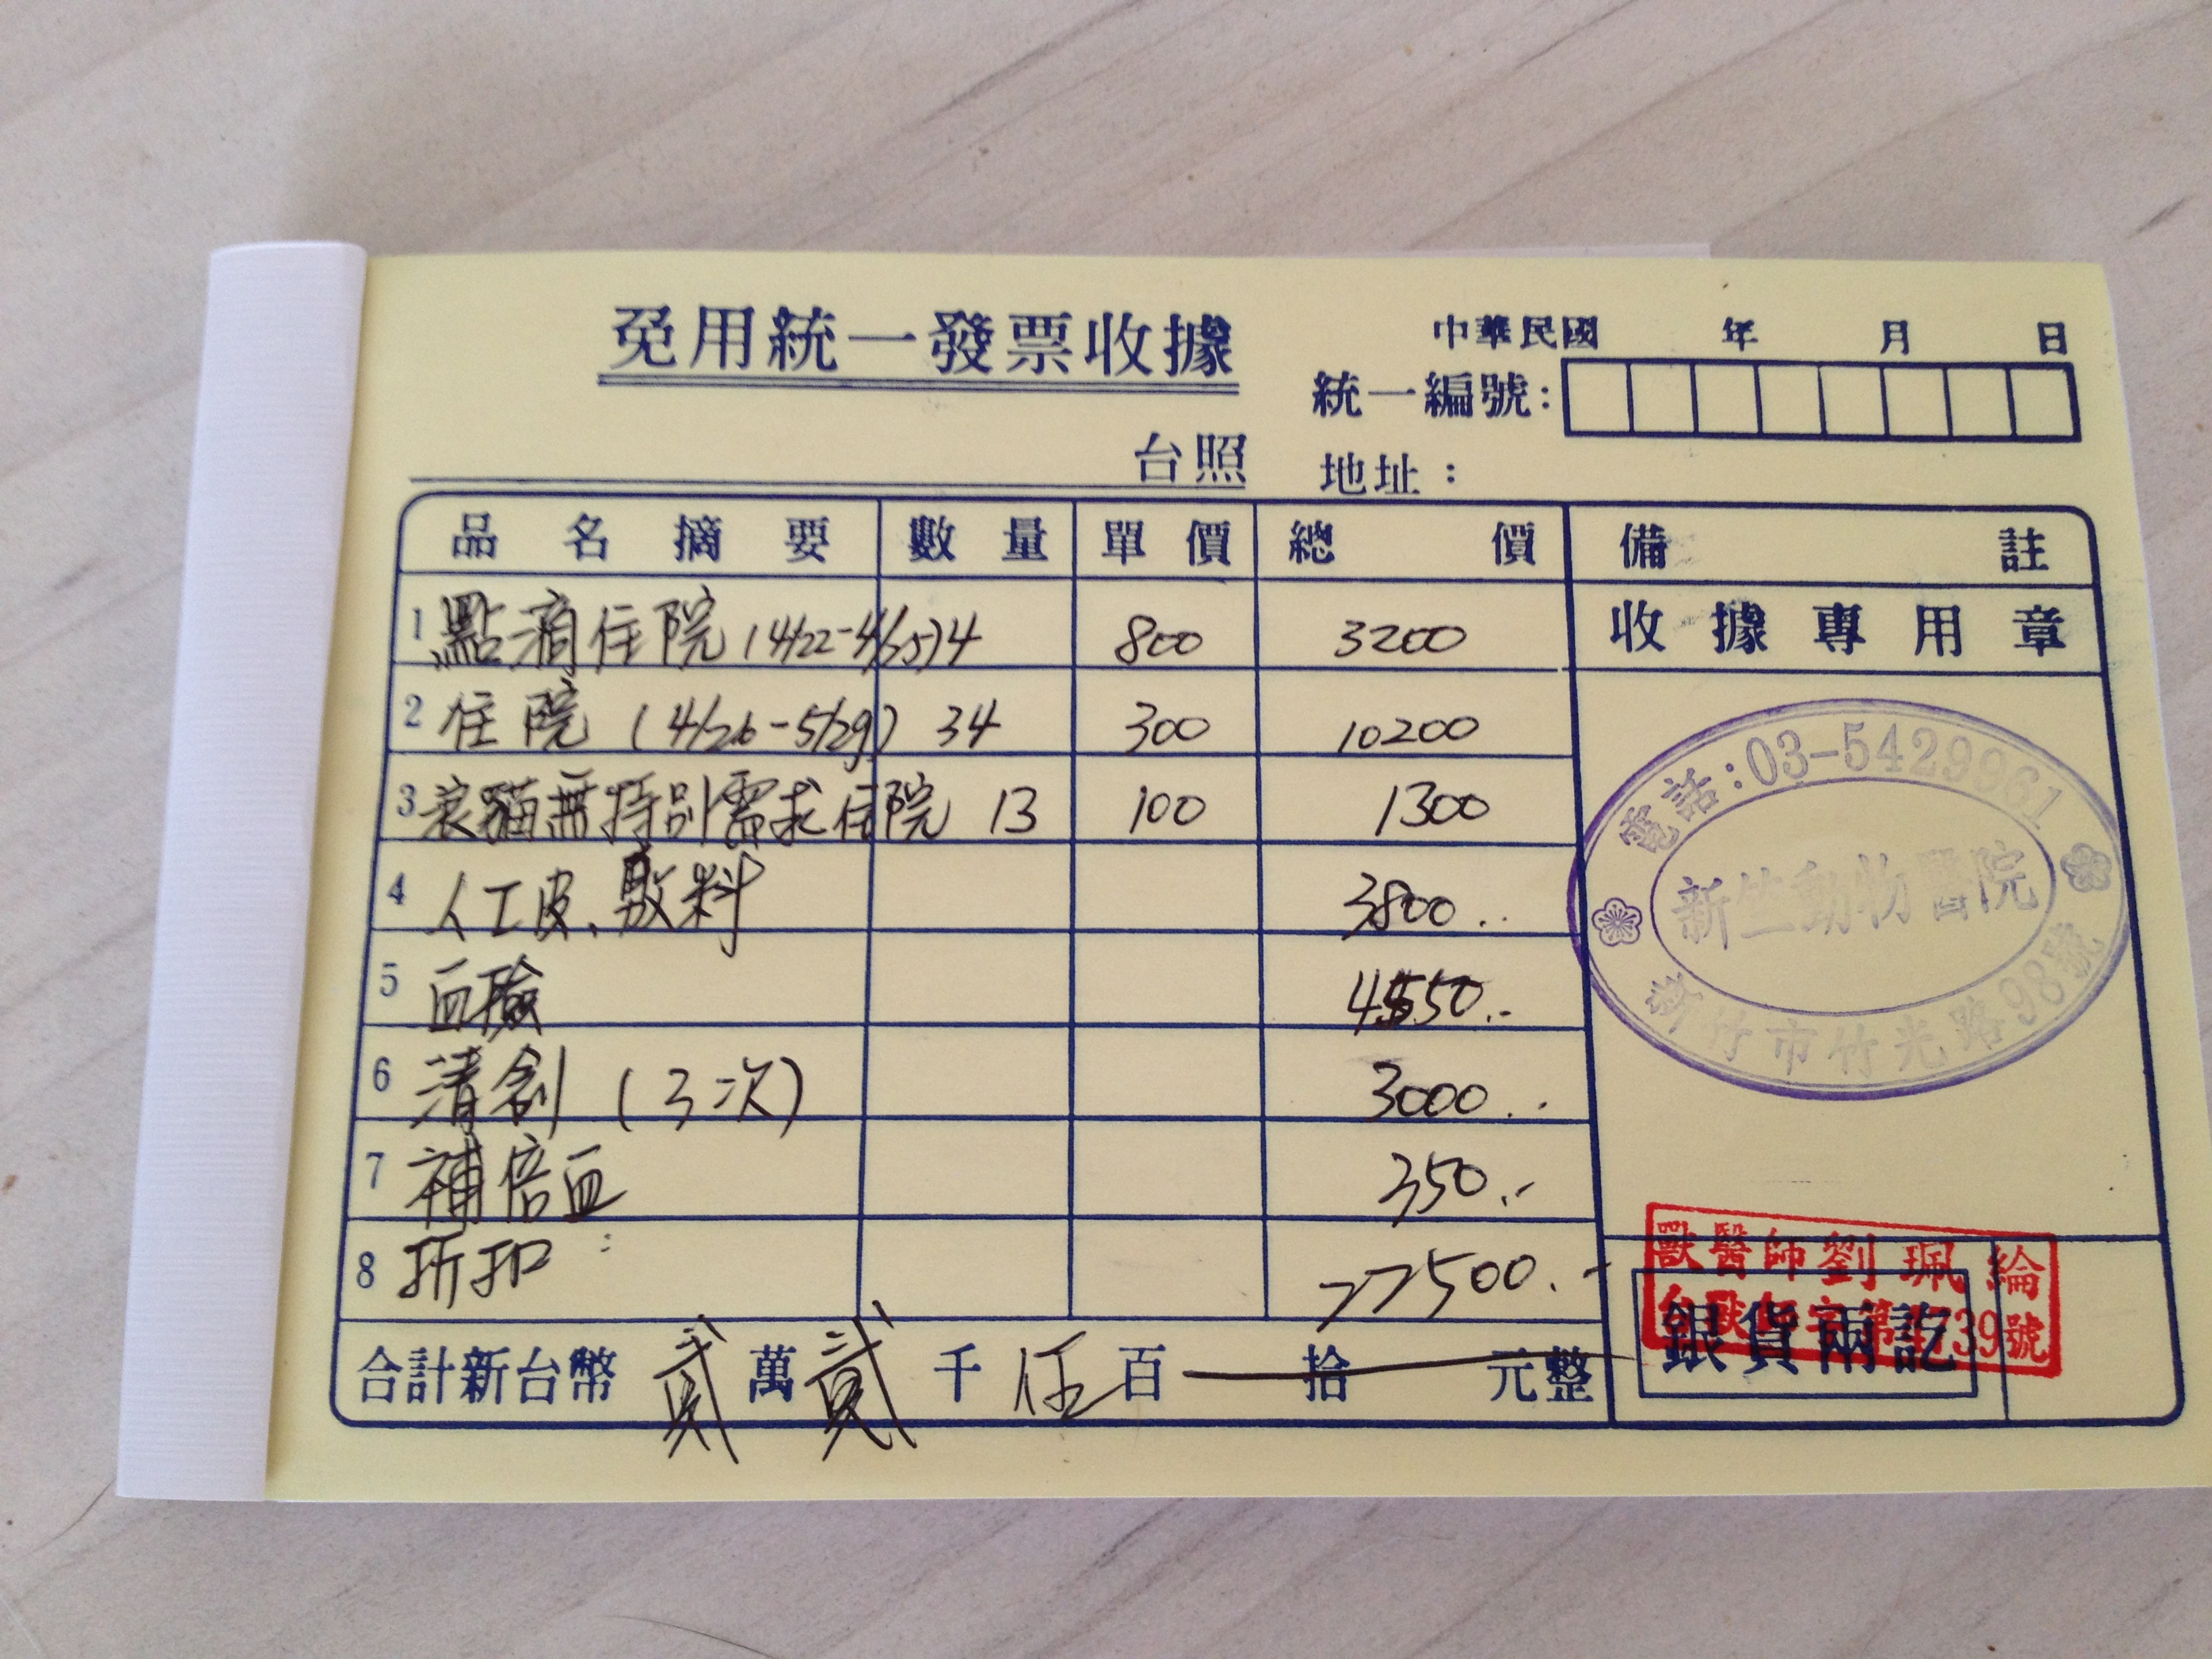 免用統一發票收據
中華民國 年 月 日
統一編號:
台照 地址:
品名摘要 數量 單價 總價 備註
收據專用章
1 點滴住院(4/22-4/25) 4 800 3200
2 住院(4/26-5/29) 34 300 10200
3 衰貓無特別需求住院 13 100 1300
4 人工皮、敷料 3800.-
5 血檢 4550.-
6 清創(3次) 3000.-
7 補倍血 350.-
8 折扣: 22500.-
合計新台幣 貳萬貳千伍百 拾 元整
電話:03-5429961
新竺動物醫院
新竹市竹光路98號
獸醫師劉珮綸
39號
銀貨兩訖